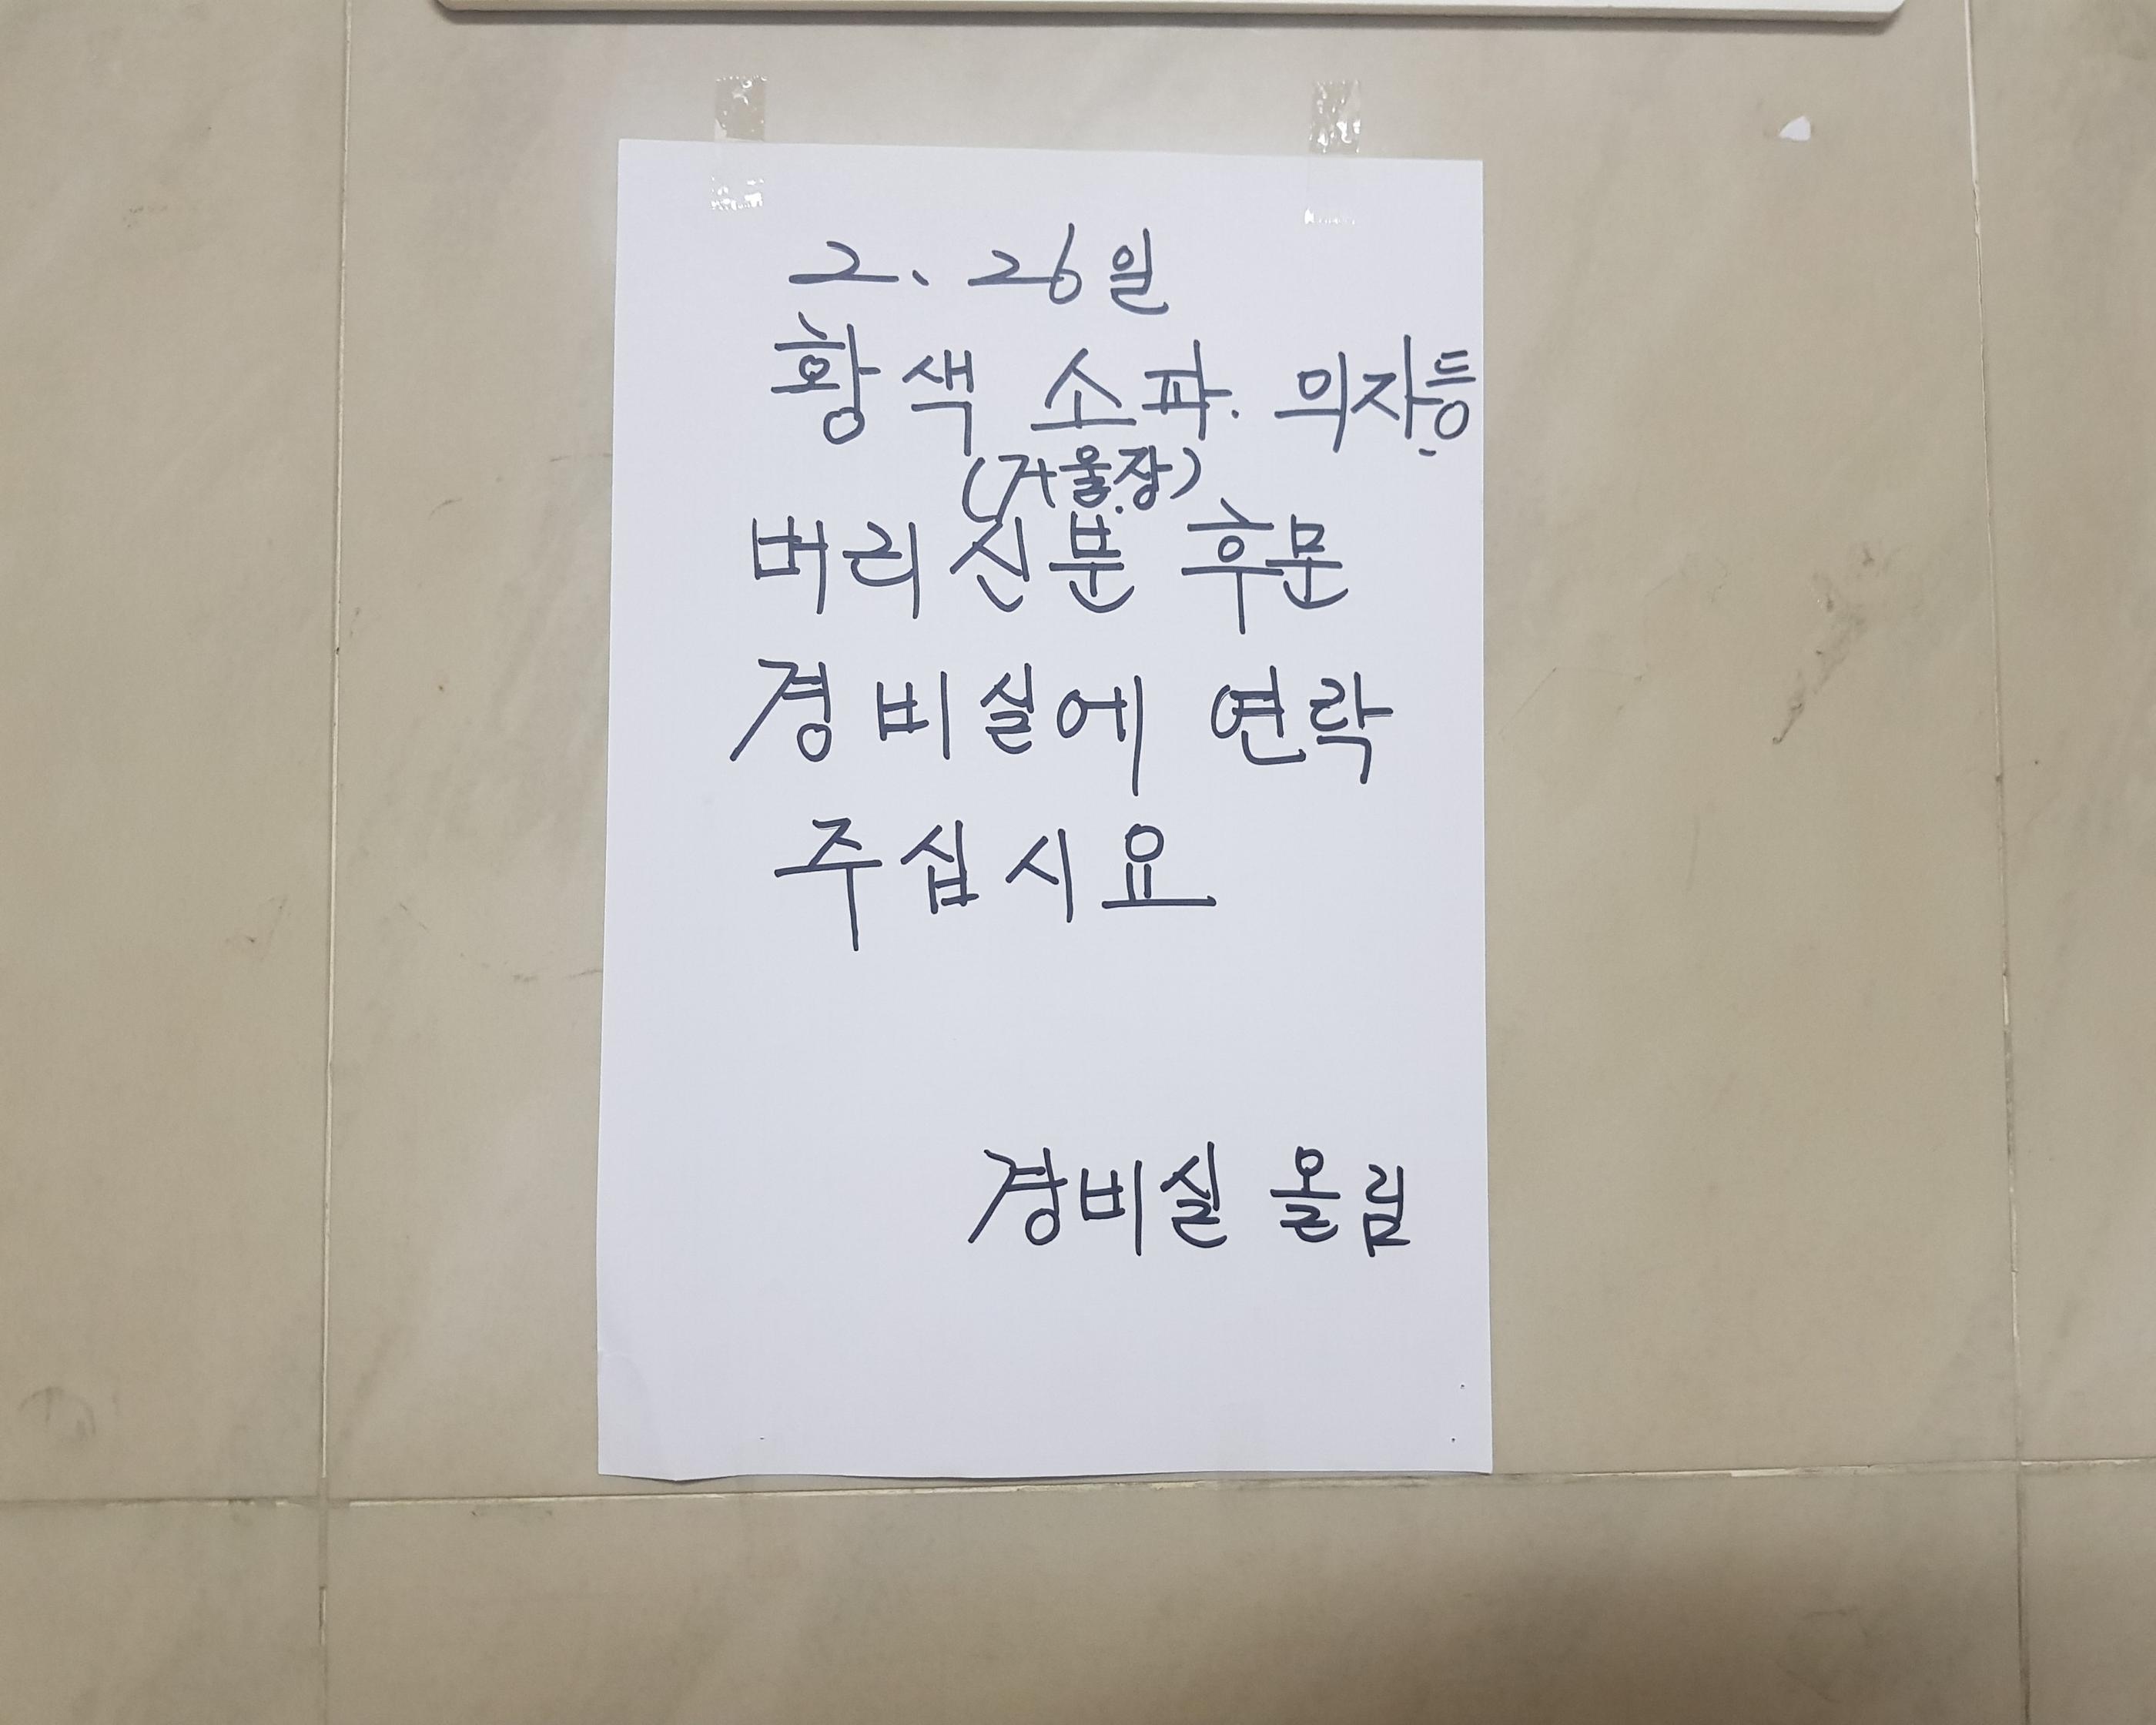 2. 26일
황색 소파. 의자등.
(거울장)
버리신분 후문
경비실에 연락
주십시요
경비실 올림